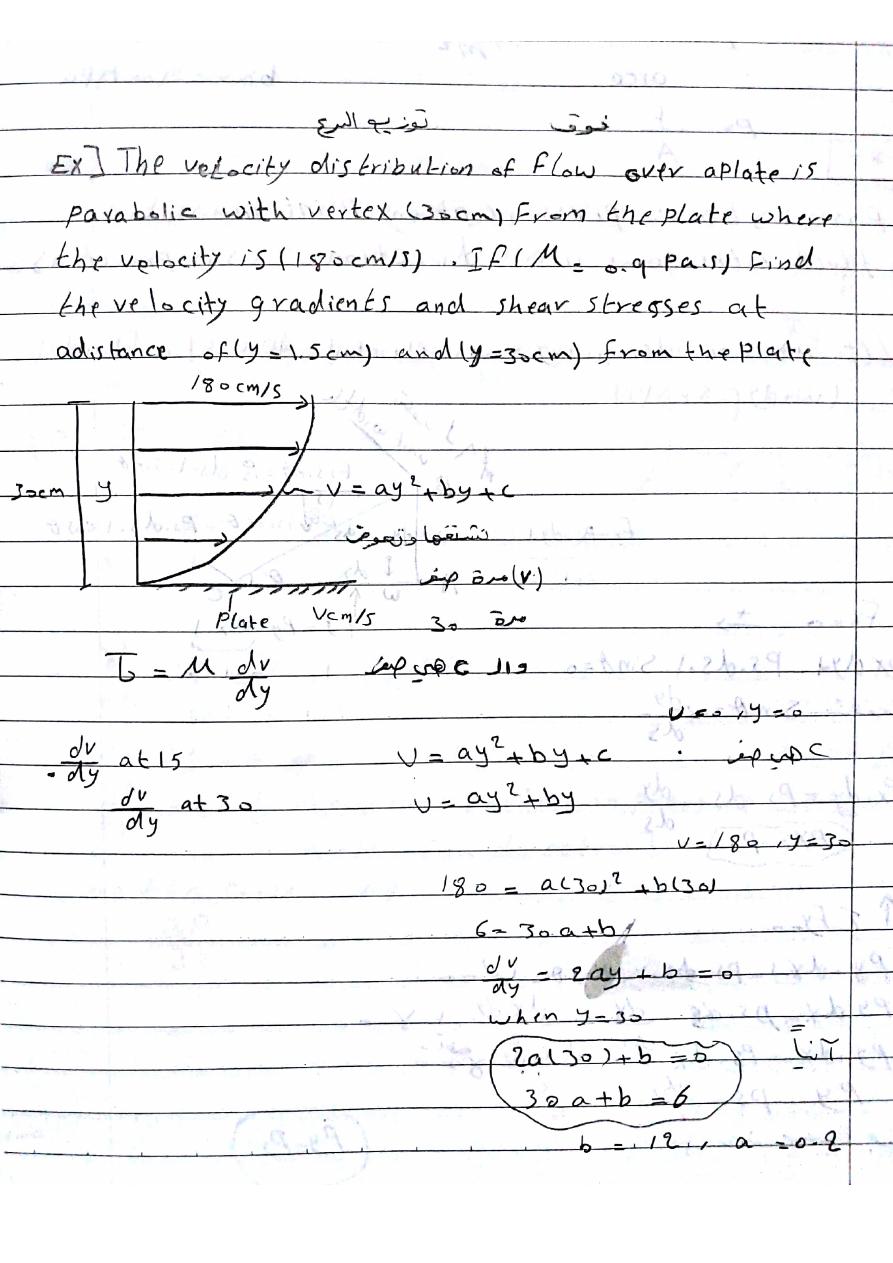 فوق توزيع السرع
Ex] The velocity distribution of flow over aplate is
parabolic with vertex (30cm) From the plate where
the velocity is (180cm/s). If (M = 0.9 pa.s) Find
the velocity gradients and shear stresses at
adistance of (y = 1.5cm) and (y=30cm) from the plate
180cm/s
30cm y v = ay²+by+c
نشتقها ونعوض
(v) مرة صفر
Plate Vcm/s
مرة 30
τ = M dv/dy
والـ c هي صفر
v=0, y=0
dv/dy at 15
v = ay²+by+c
c هي صفر
dv/dy at 30
v = ay²+by
v=180, y=30
180 = a(30)² + b(30)
6 = 30a+b
dv/dy = 2ay + b = 0
when y=30
2a(30)+b = 0 آنياً
30a+b = 6
b = 12, a = 0.2